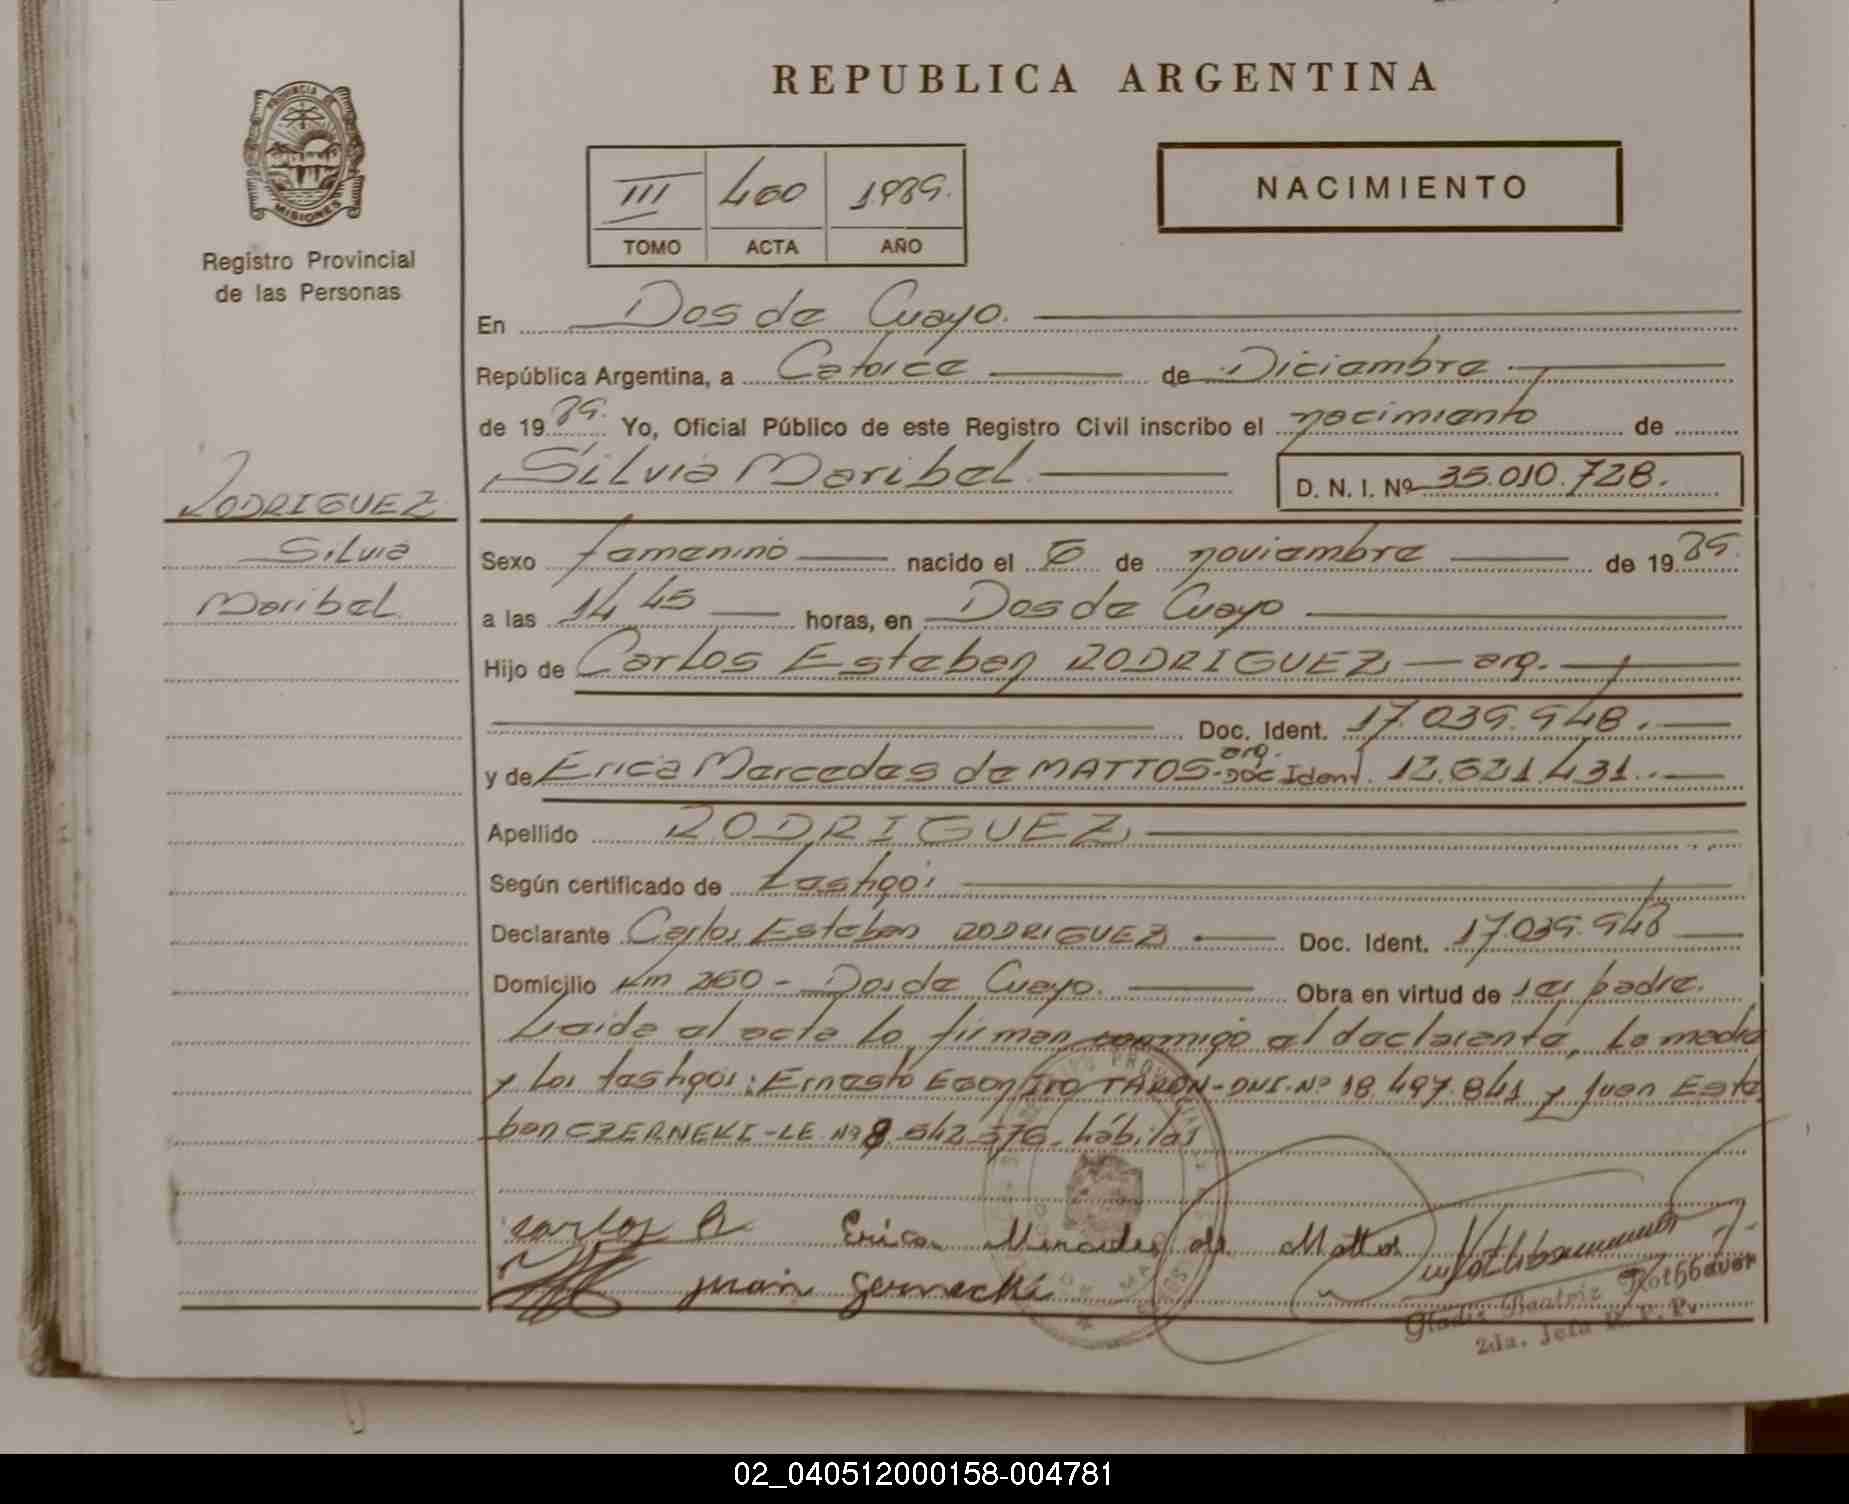 REPUBLICA ARGENTINA
PROVINCIA DE
MISIONES
Registro Provincial
de las Personas
III 460 1989.
TOMO ACTA AÑO
NACIMIENTO
En Dos de Mayo.
República Argentina, a Catorce de Diciembre
de 19 89. Yo, Oficial Público de este Registro Civil inscribo el nacimiento de
Silvia Maribel D. N. I. Nº 35.010.728.
RODRIGUEZ
Silvia
Maribel
Sexo femenino nacido el 6 de noviembre de 19 89.
a las 14 45 horas, en Dos de Mayo
Hijo de Carlos Esteban RODRIGUEZ - arg.
Doc. Ident. 17.039.948.
y de Erica Mercedes de MATTOS - arg. Doc Ident. 12.621.431.
Apellido RODRIGUEZ
Según certificado de testigos
Declarante Carlos Esteban RODRIGUEZ Doc. Ident. 17.039.948
Domicilio Km 260 - Dos de Mayo. Obra en virtud de ser padre.
Leida el acta lo firman conmigo el declarante, la madre
y los testigos: Ernesto TARON - DNI. Nº 18.497.841 y Juan Este
ban CZERNEKI - LE Nº 8.542.576. hábiles
carlos R Erica Mercedes de Mattos
juan
Gladis Beatriz Rothbauer
2da. Jefa R. P. P.
02_040512000158-004781